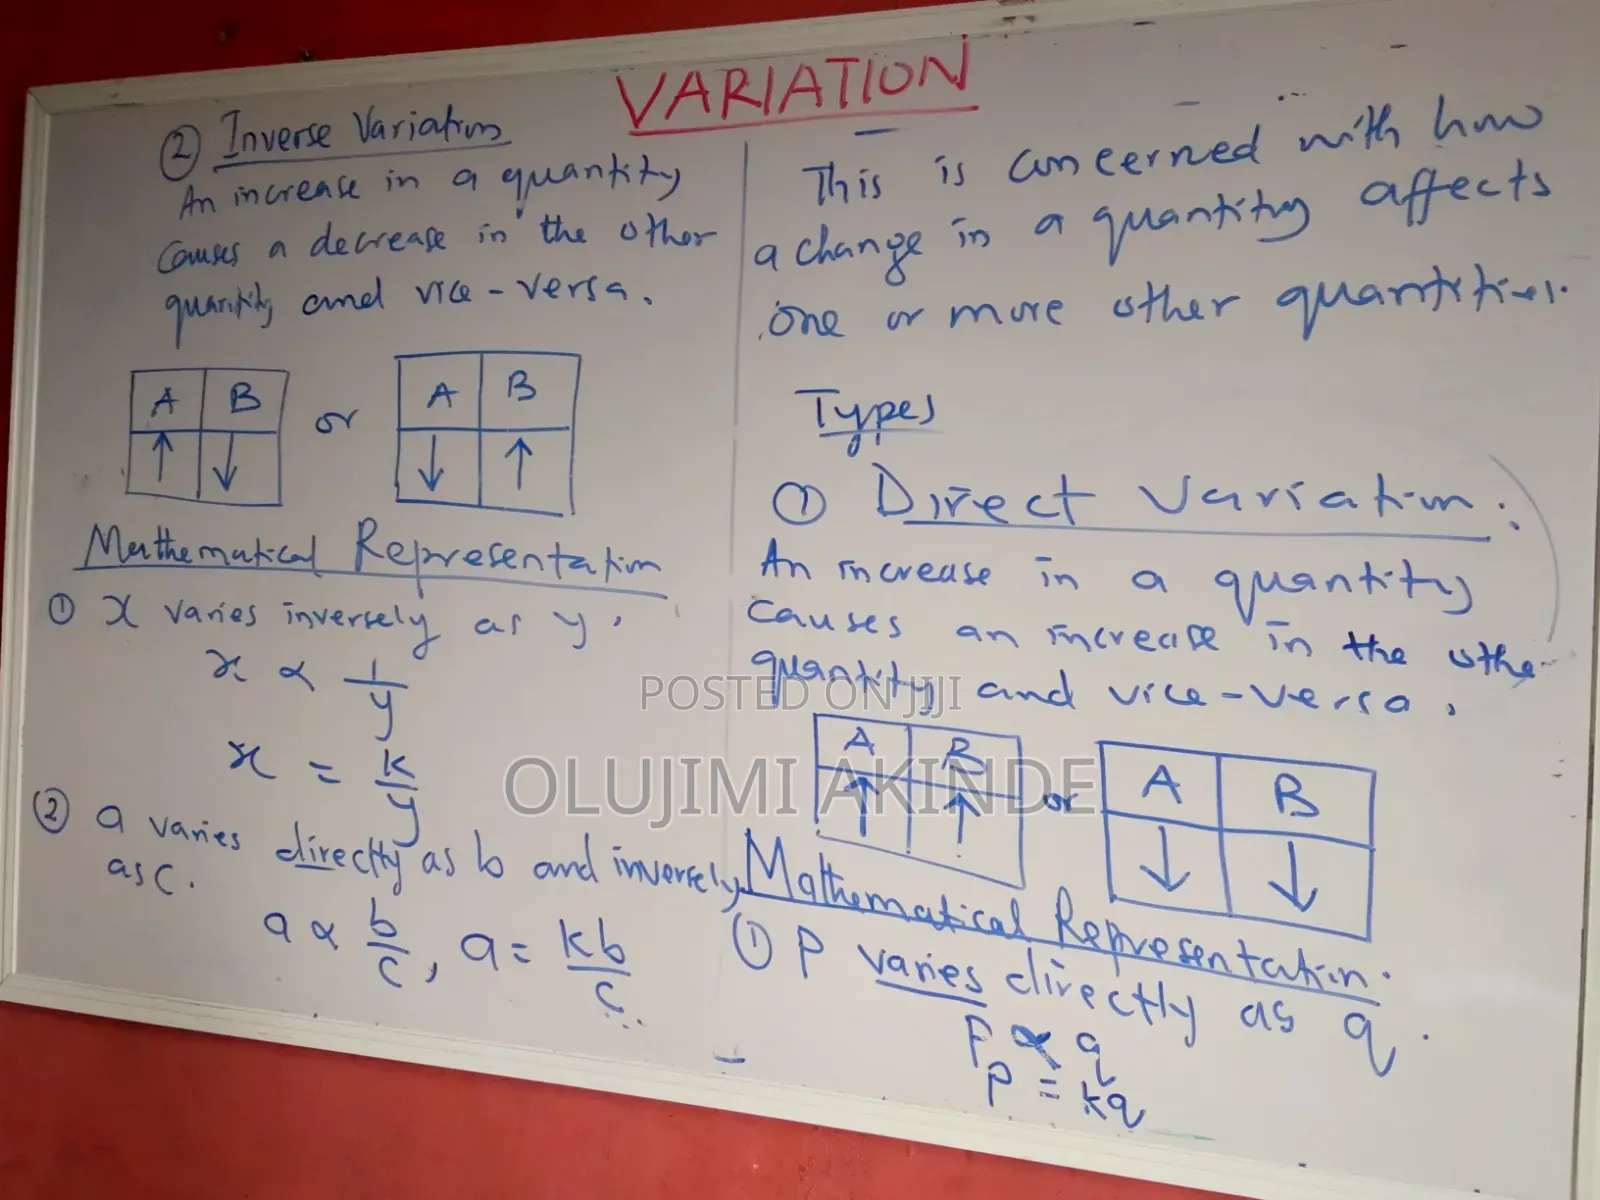 VARIATION
② Inverse Variation
An increase in a quantity
causes a decrease in the other
quantity and vice-versa.
A B or A B
↑ ↓ ↓ ↑
Mathematical Representation
① x varies inversely as y.
x ∝ 1/y
x = k/y
② a varies directly as b and inversely
as c.
a ∝ b/c, a = kb/c
This is concerned with how
a change in a quantity affects
one or more other quantities.
Types
① Direct Variation:
An increase in a quantity
causes an increase in the other
quantity and vice-versa.
A B or A B
↑ ↑ ↓ ↓
Mathematical Representation.
① P varies directly as q.
P ∝ q
P = kq
POSTED ON JIJI
OLUJIMI AKINDE